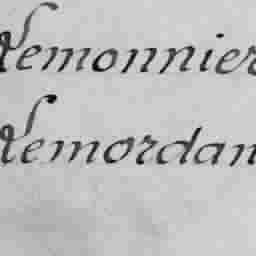 Lemonnier
Lemordan